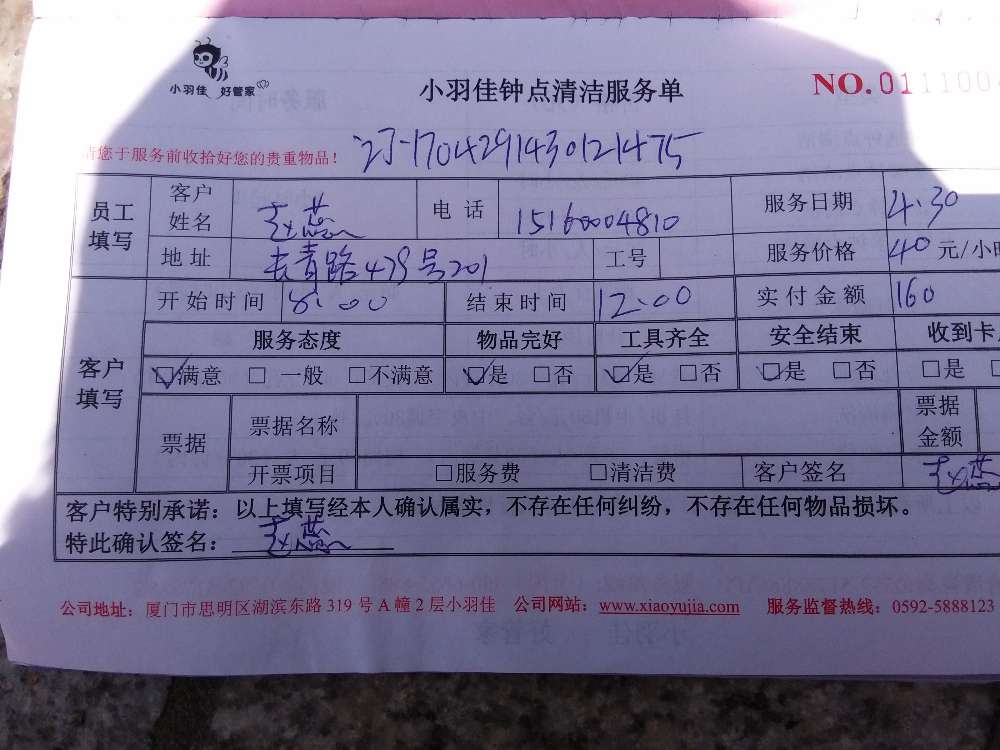 小羽佳 好管家
小羽佳钟点清洁服务单
NO. 0111100
请您于服务前收拾好您的贵重物品!
17042914430121475
员工填写 客户姓名 赵蕊 电话 15160004810 服务日期 4.30
地址 长青路479号201 工号 服务价格 40 元/小时
客户填写 开始时间 8:00 结束时间 12:00 实付金额 160
服务态度 物品完好 工具齐全 安全结束 收到卡
☑满意 □ 一般 □不满意 ☑是 □否 ☑是 □否 ☑是 □否 □是 □
票据 票据名称 票据金额
开票项目 □服务费 □清洁费 客户签名 赵蕊
客户特别承诺：以上填写经本人确认属实，不存在任何纠纷，不存在任何物品损坏。
特此确认签名： 赵蕊
公司地址：厦门市思明区湖滨东路 319 号 A 幢 2 层小羽佳 公司网站：www.xiaoyujia.com 服务监督热线：0592-5888123